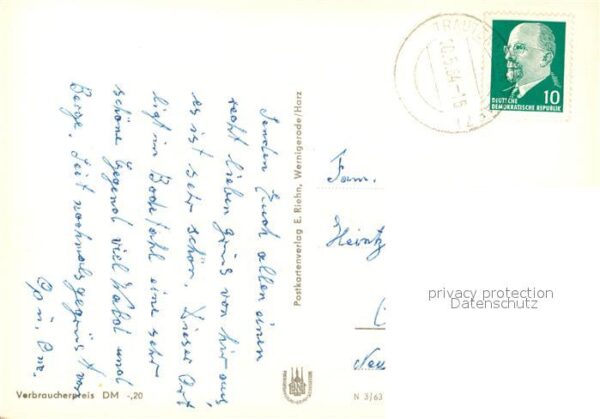 Senden Euch allen einen
recht lieben Gruß von hier aus,
es ist sehr schön. Dieser Ort
ligt im Bodetahl eine sehr
schöne Gegend viel Wald und
Berge. Seit nochmals gegrüßt von
Op u. Om.
Postkartenverlag E. Riehn, Wernigerode/Harz
Verbraucherpreis DM -,20
N 3/63
TRAUTE
10.5.64-16
10
DEUTSCHE
DEMOKRATISCHE REPUBLIK
Fam.
Heintz
Neu
privacy protection
Datenschutz